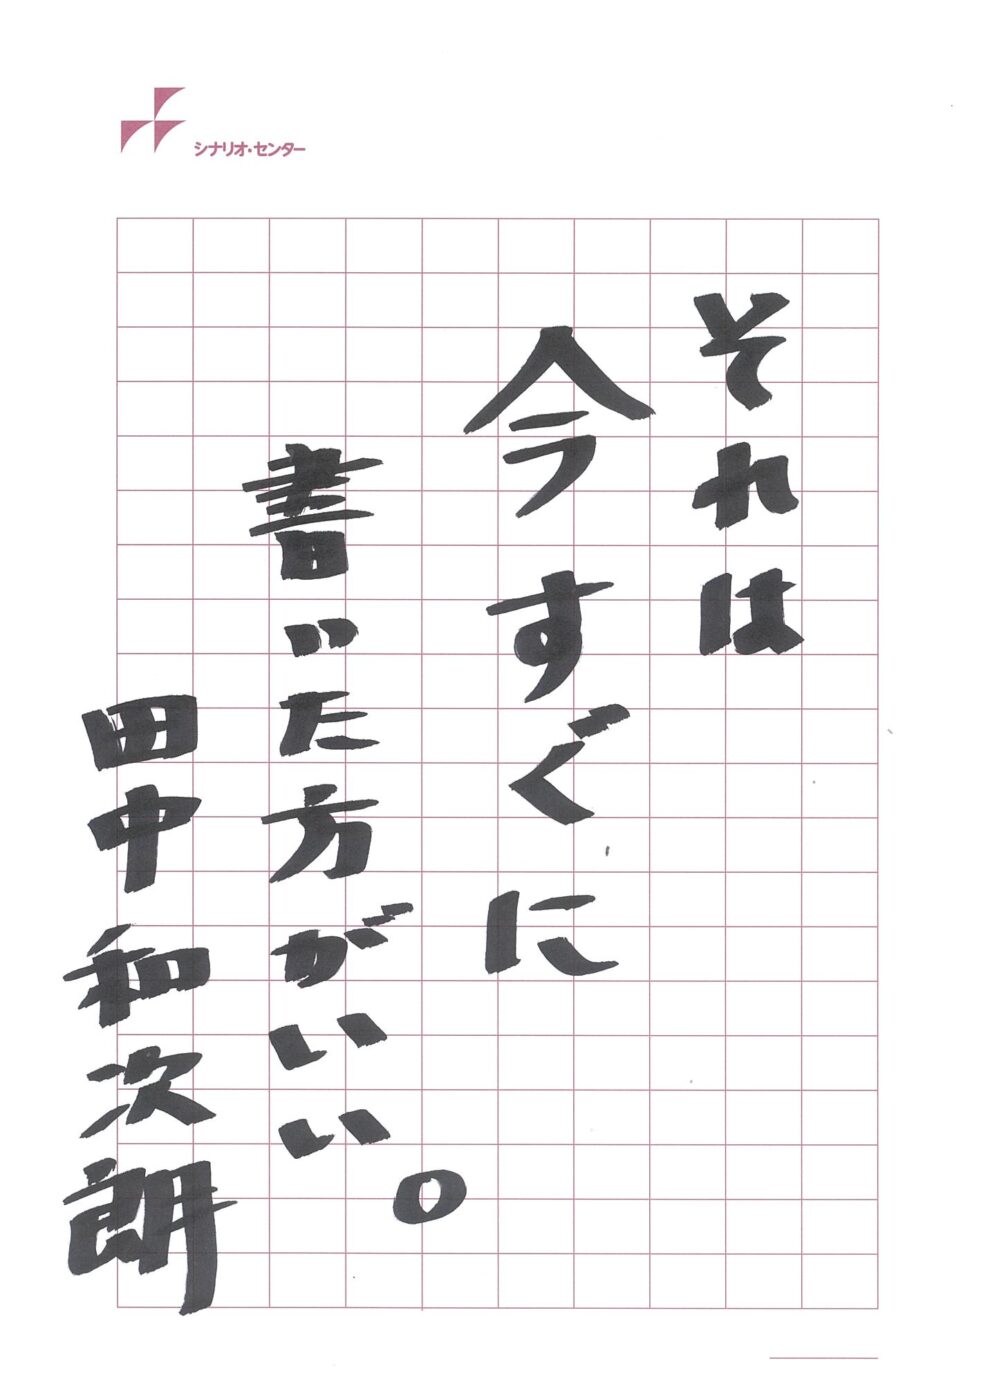 シナリオ・センター
それは
今すぐに
書いた方がいい。
田中和次朗